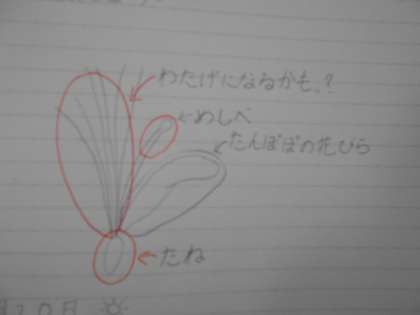 わたげになるかも、?
めしべ
たんぽぽの花びら
たね
月10日